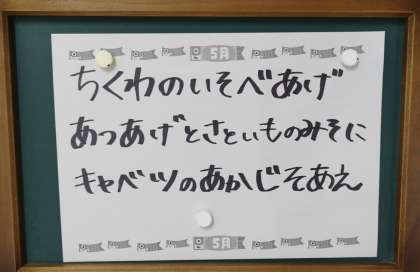 5月
ちくわのいそべあげ
あつあげとさといものみそに
キャベツのあかじそあえ
5月